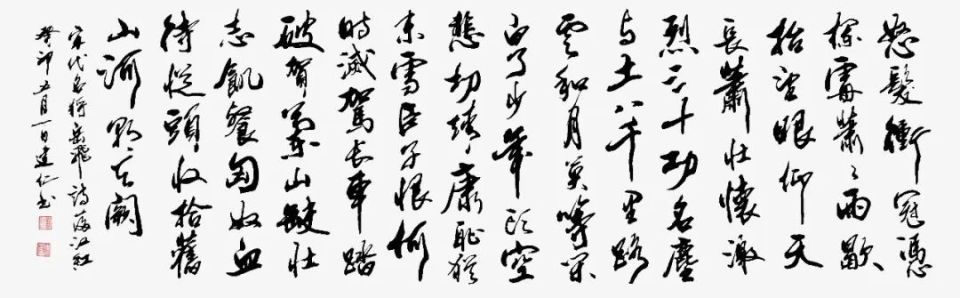 怒髮衝冠憑
欄處蕭〻雨歇
抬望眼仰天
長蕭壯懷激
烈三十功名塵
与土八千里路
雲和月莫等閑
白了少年頭空
悲切靖康恥猶
未雪臣子恨何
時滅駕長車踏
破賀蘭山缺壯
志飢餐匈奴血
待從頭收拾舊
山河朝天闕
宋代名將岳飛詩滿江紅
癸卯五月一日建仁书